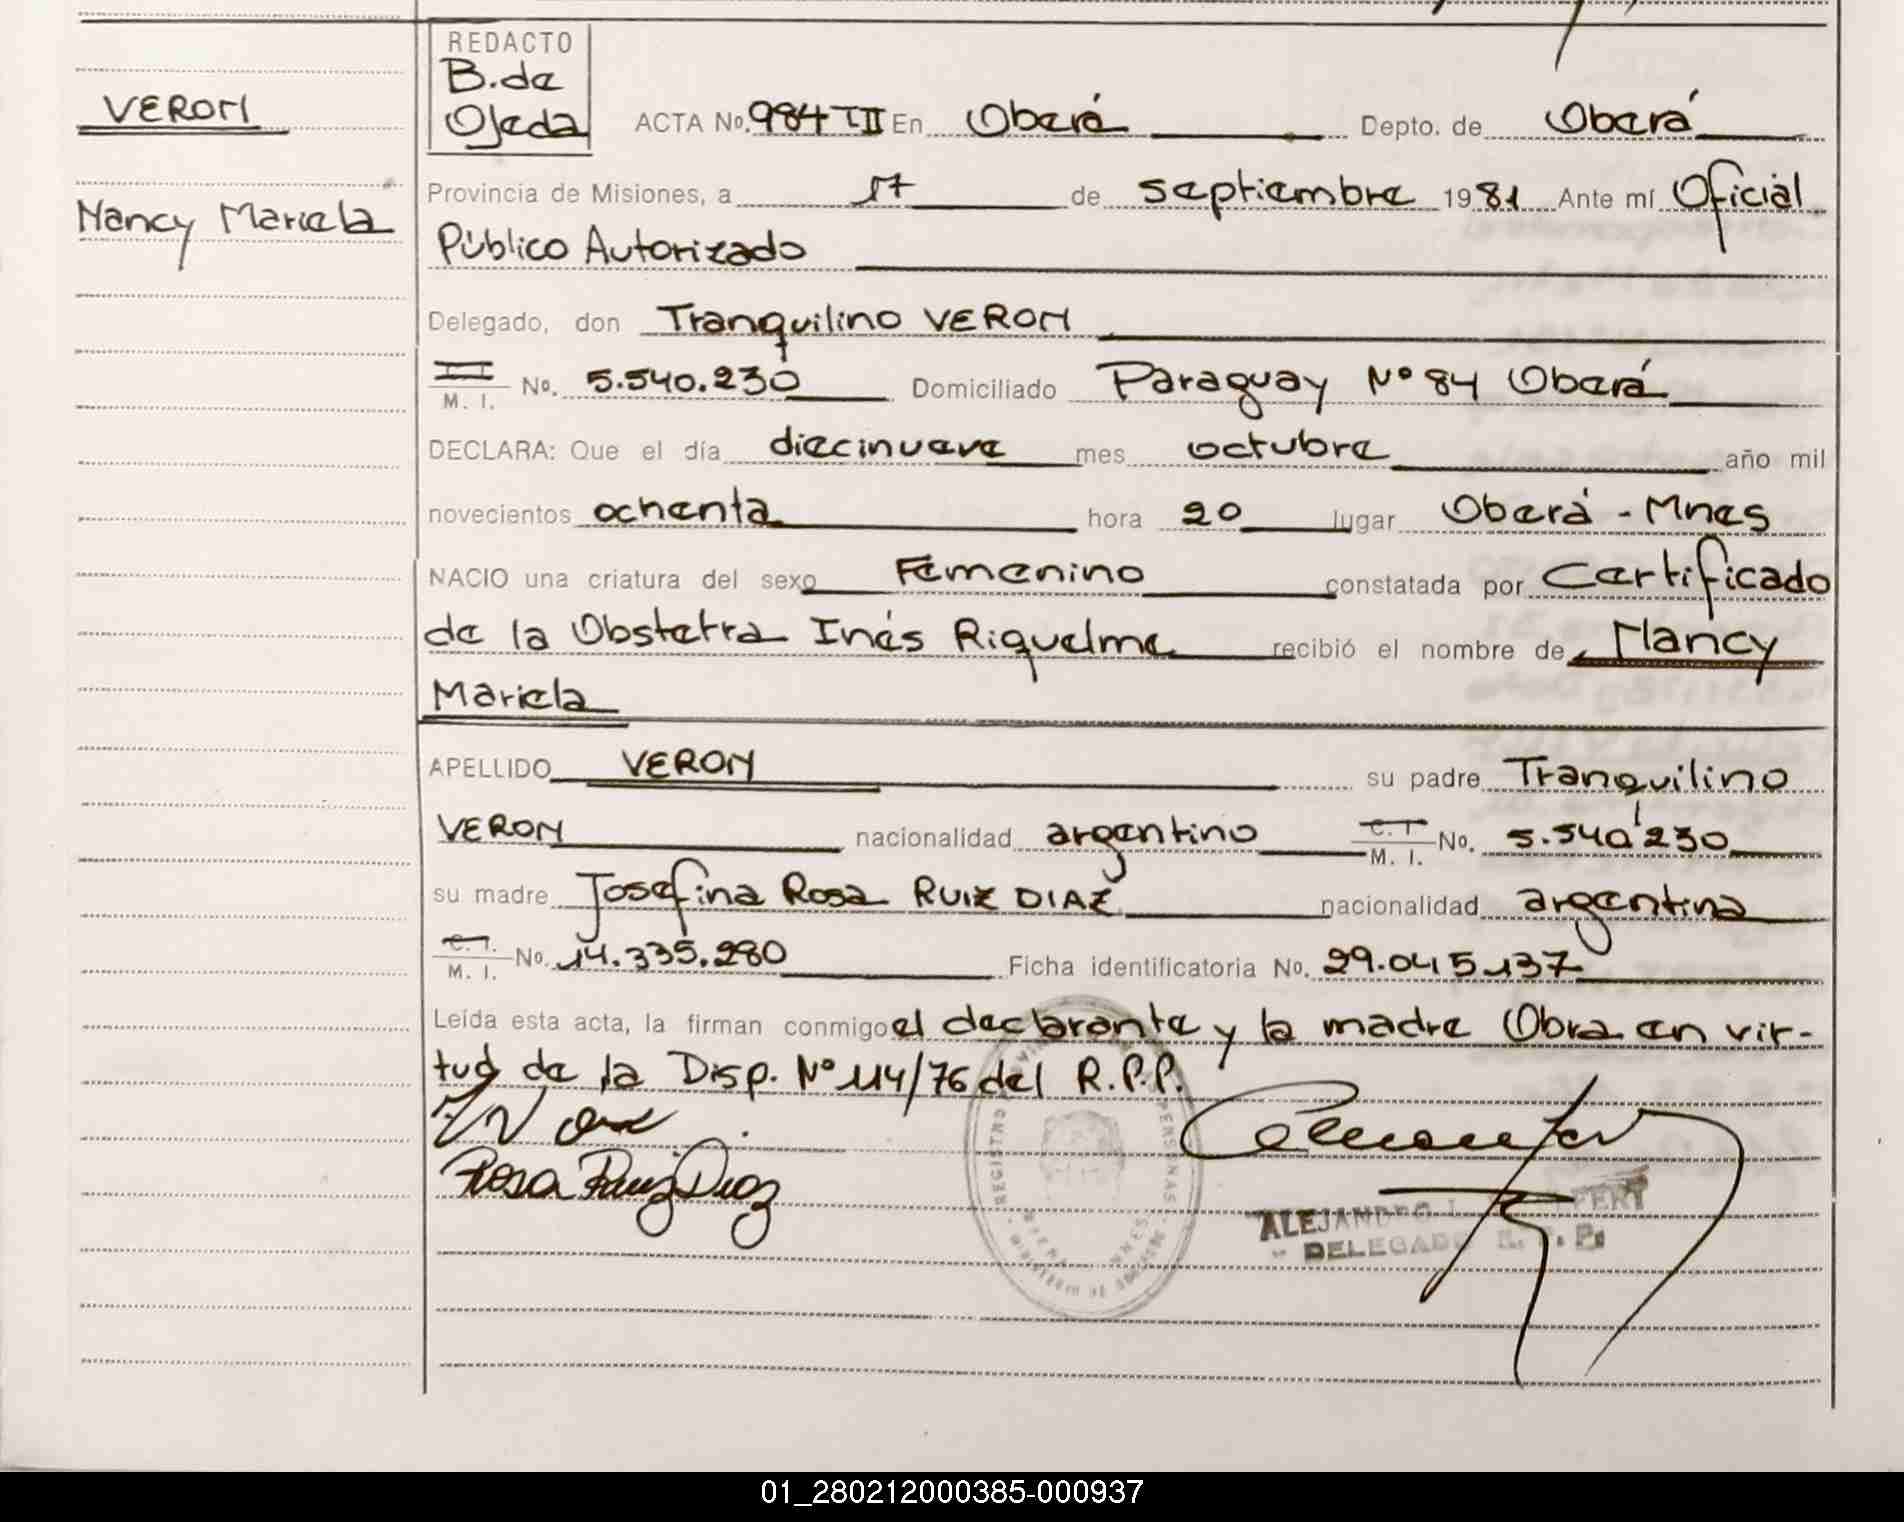 REDACTO
B. de
Ojeda
VERON
ACTA No. 984 TII En Oberá Depto. de Oberá
Nancy Mariela
Provincia de Misiones, a 17 de septiembre 1981 Ante mí Oficial
Público Autorizado
Delegado, don Tranquilino VERON
M. I. No. 5.540.230 Domiciliado Paraguay Nº 84 Oberá
DECLARA: Que el día diecinueve mes octubre año mil
novecientos ochenta hora 20 lugar Oberá - Mnes
NACIO una criatura del sexo Femenino constatada por Certificado
de la Obstetra Inés Riquelme recibió el nombre de Nancy
Mariela
APELLIDO VERON su padre Tranquilino
VERON nacionalidad argentino C. I. M. I. No. 5.540.230
su madre Josefina Rosa RUIZ DIAZ nacionalidad argentina
C. I. M. I. No. 14.335.280 Ficha identificatoria No. 29.045.137
Leída esta acta, la firman conmigo el declarante y la madre Obra en vir-
tud de la Disp. Nº 114/76 del R.P.P.
Rosa Ruiz Diaz
REGISTRO PERSONAS
ALEJANDRO
DELEGADO R. P. P.
01_280212000385-000937